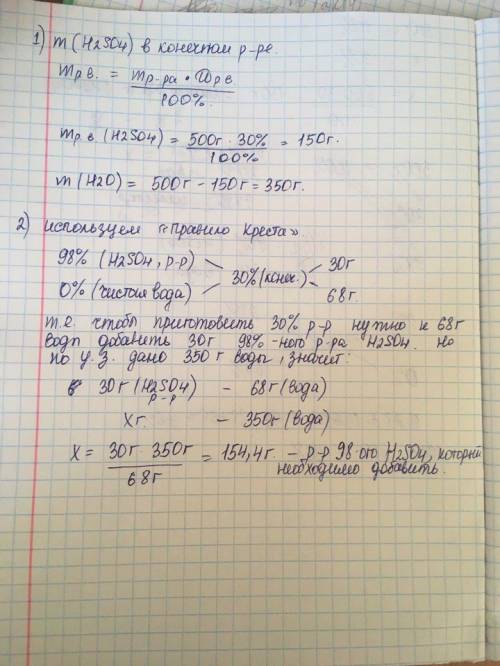 1) m (H2SO4) в конечном р-ре.
mр.в. = mр-ра · ωр.в
100%.
mр.в. (H2SO4) = 500г · 30% = 150г.
100%
m (H2O) = 500г - 150г = 350г.
2) используем "Правило креста".
98% (H2SO4, р-р) 30г
30% (конеч.)
0% (чистая вода) 68г.
т.е. чтобы приготовить 30% р-р нужно к 68г
воды добавить 30г 98%-ного р-ра H2SO4. но
по у.з. дано 350г воды, значит:
30г (H2SO4) - 68г (вода)
р-р
Xг. - 350г (вода)
X = 30г · 350г = 154,4г. - р-р 98-ого H2SO4, который
68г необходимо добавить.